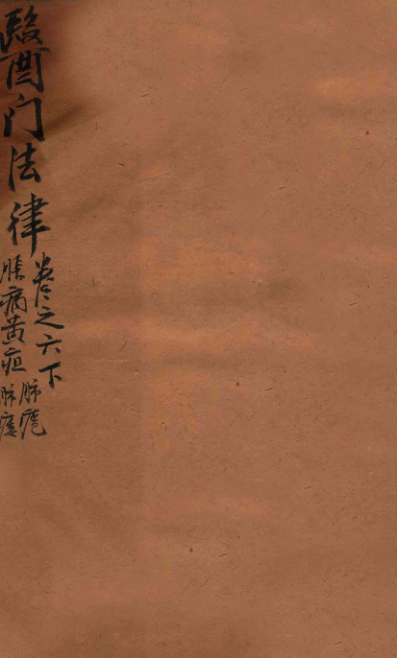 醫门法律
卷之六下
脹病黄疸
肺癰
肺痿